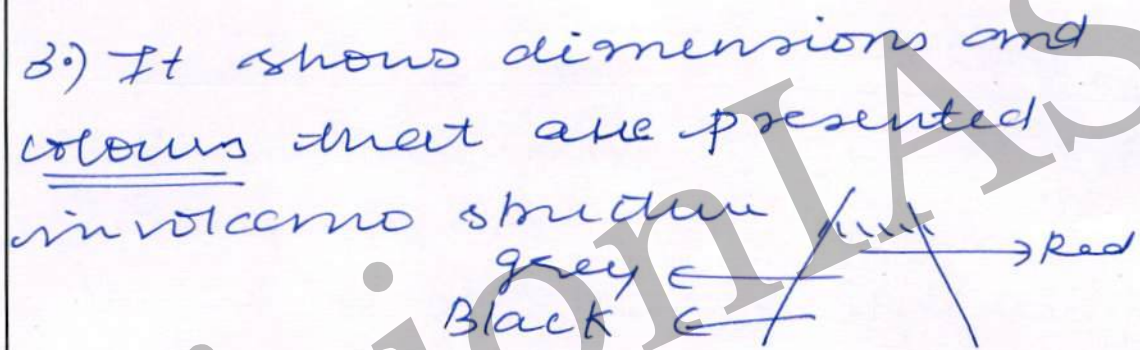 3.) It shows dimensions and
colours that are presented
in volcano structure
grey Red
Black
ionIAS